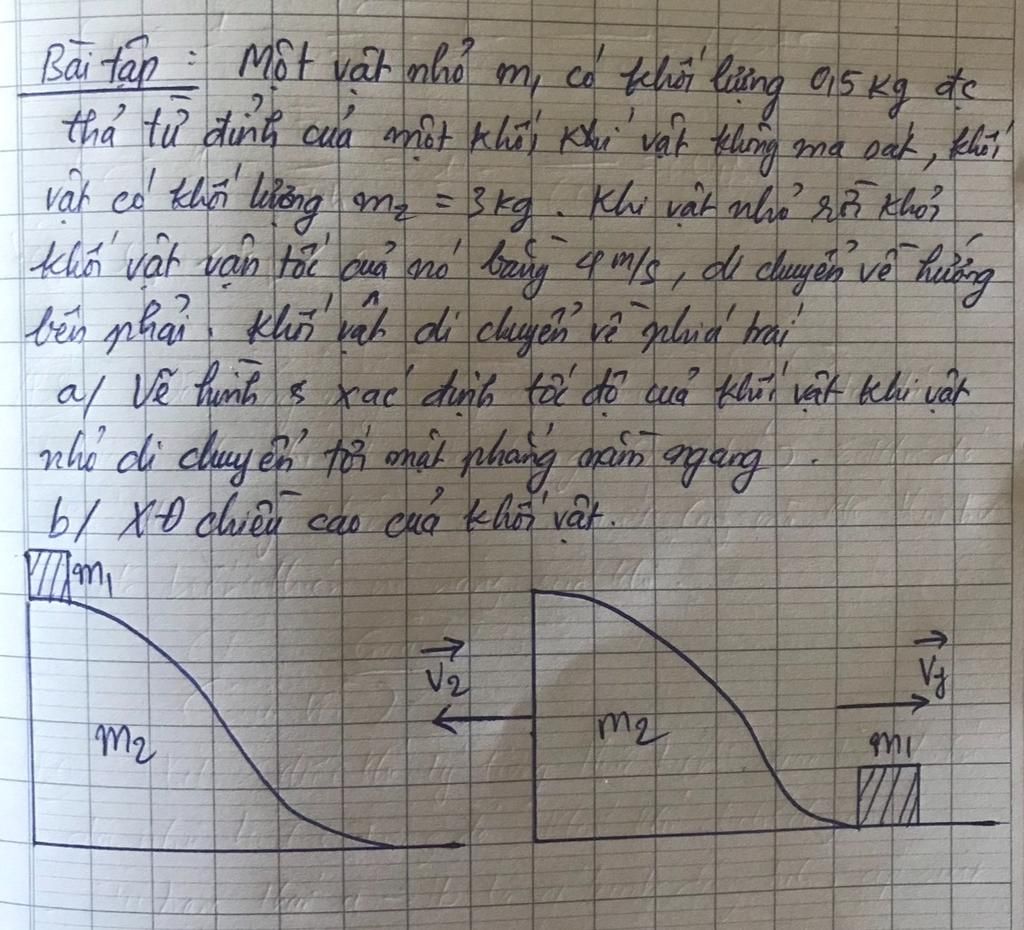 Bài tập : Một vật nhỏ m₁ có khối lượng 0,5 kg đc
thả từ đỉnh của một khối khi vật không ma sát, khối
vật có khối lượng m₂ = 3 kg. Khi vật nhỏ rời khỏi
khối vật vận tốc của nó bằng 4 m/s, di chuyển về hướng
bên phải. Khối vật di chuyển về phía trái
a/ Vẽ hình & xác định tốc độ của khối vật khi vật
nhỏ di chuyển tới mặt phẳng nằm ngang.
b/ XĐ chiều cao của khối vật.
m₁
m₂
V₂
m₂
V₁
m₁